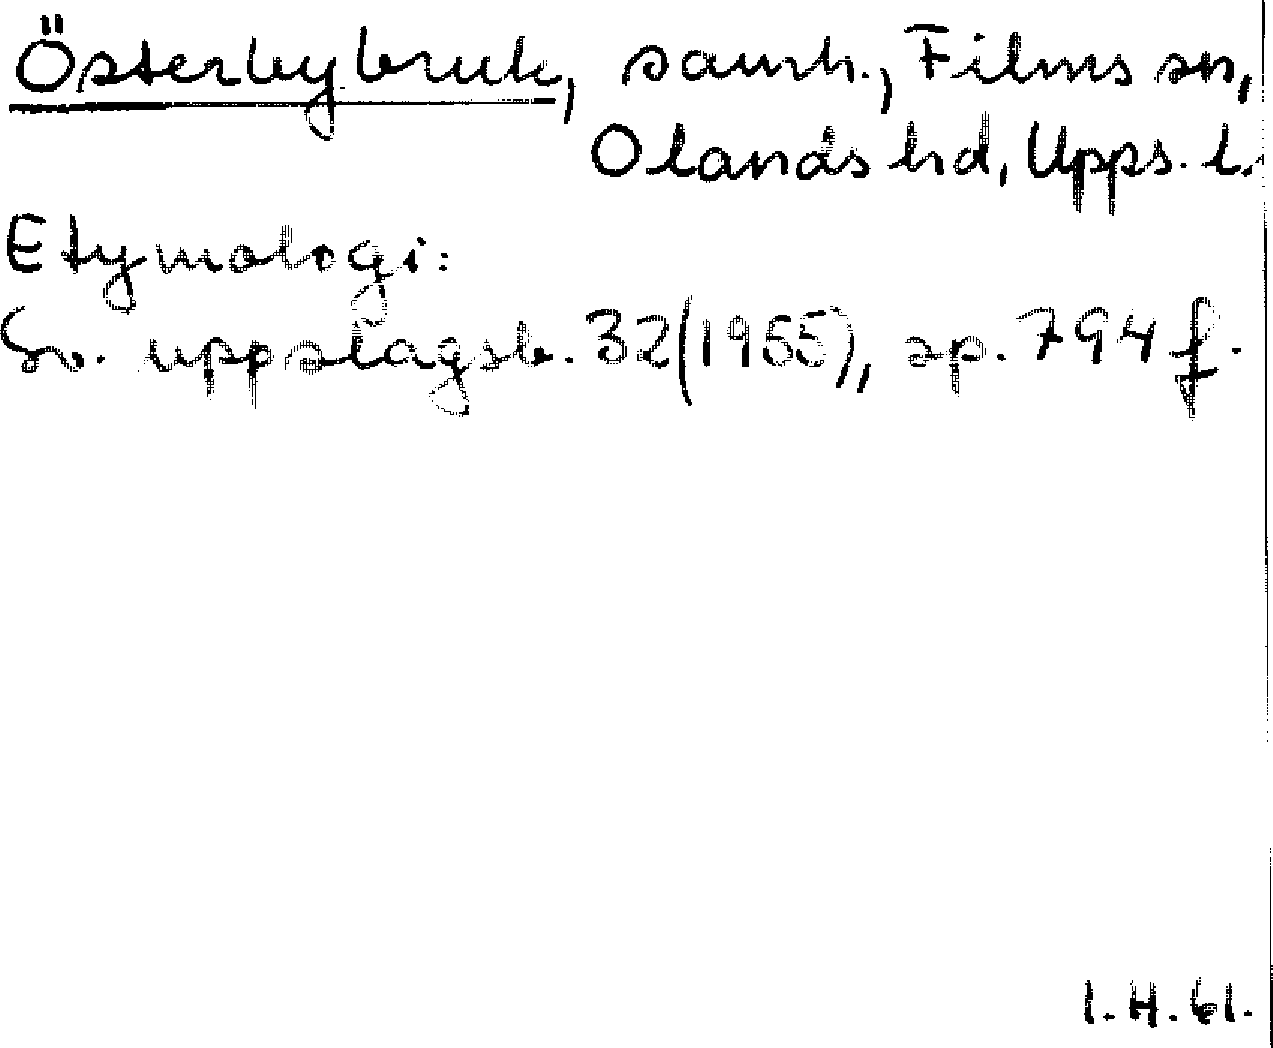 Österbybruk, samh., Films sn,
Olands hd, Upps. l.
Etymologi:
Sv. uppslagsb. 32(1955), sp. 794 f.
I.H.61.